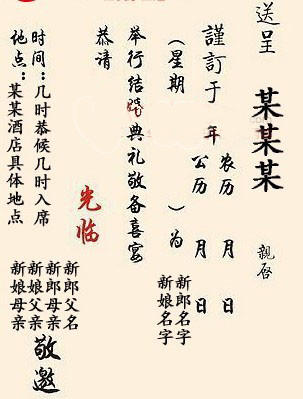 送呈
某某某
親启
謹訂于 年 农历 月 日
公历 月 日
（星期 ）为
新郎名字
新娘名字
举行结婚典礼敬备喜宴
恭请
光临
新郎父名
新郎母亲
新娘父亲
新娘母亲
敬邀
时间：几时恭候几时入席
地点：某某酒店具体地点